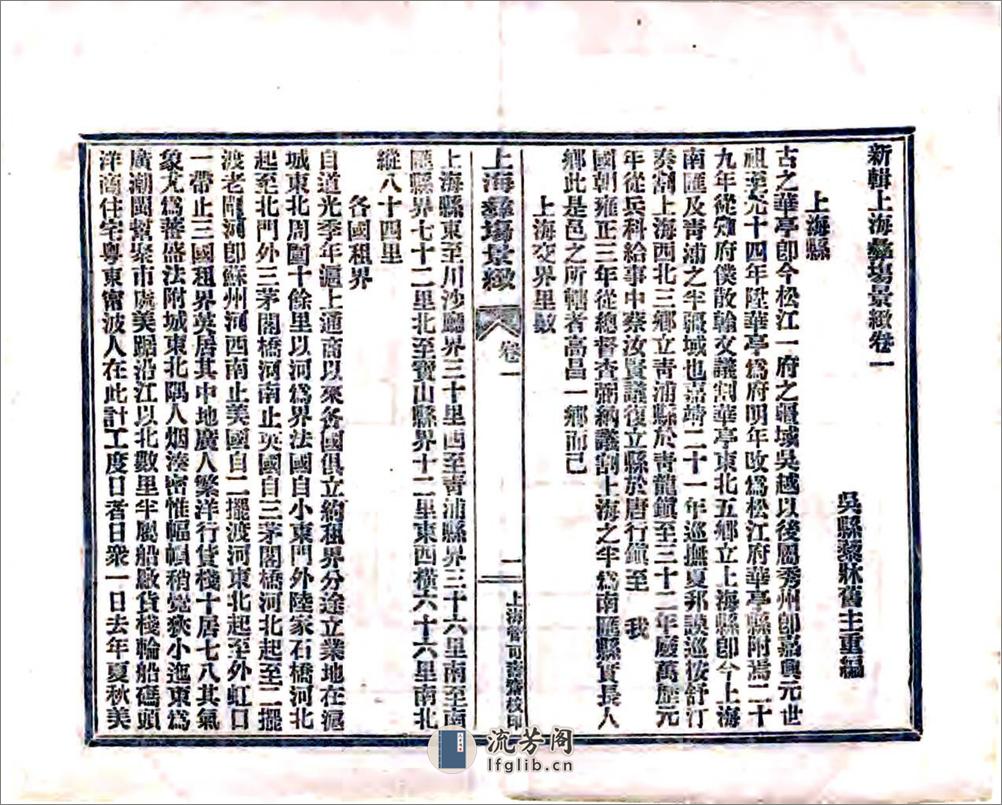 新輯上海彝場景緻卷一
吳縣黎牀舊主重編
上海縣
古之華亭卽今松江一府之疆域吳越以後屬秀州卽嘉興元世
祖至元十四年陞華亭爲府明年改爲松江府華亭縣附焉二十
九年從知府僕散翰文議割華亭東北五鄉立上海縣卽今上海
南匯及青浦之半疆域也嘉靖二十一年巡撫夏邦謨巡按舒汀
奏割上海西北三鄉立青浦縣於青龍鎮至三十二年廢萬歷元
年從兵科給事中蔡汝賢議復立縣於唐行鎮至 我
國朝雍正三年從總督查弼納議割上海之半爲南匯縣實長人
鄉此是邑之所轄者高昌一鄉而已
上海交界里數
上海彝場景緻 卷一 一 上海管可壽齋校印
上海縣東至川沙廳界三十里西至青浦縣界三十六里南至南
匯縣界七十二里北至寶山縣界十二里東西橫六十六里南北
縱八十四里
各國租界
自道光季年滬上通商以來各國俱立約租界分途立業地在滬
城東北周圍十餘里以河爲界法國自小東門外陸家石橋河北
起至北門外三茅閣橋河南止英國自三茅閣橋河北起至二擺
渡老閘河卽蘇州河西南止美國自二擺渡河東北起至外虹口
一帶止三國租界英居其中地廣人繁洋行貨棧十居七八其氣
象尤爲蕃盛法附城東北隅人烟湊密惟幅幀稍覺狹小迤東爲
廣潮閩幫聚市處美踞沿江以北數里半屬船廠貨棧輪船碼頭
洋商住宅粵東甯波人在此計工度日者日衆一日去年夏秋美
流芳阁
lfglib.cn